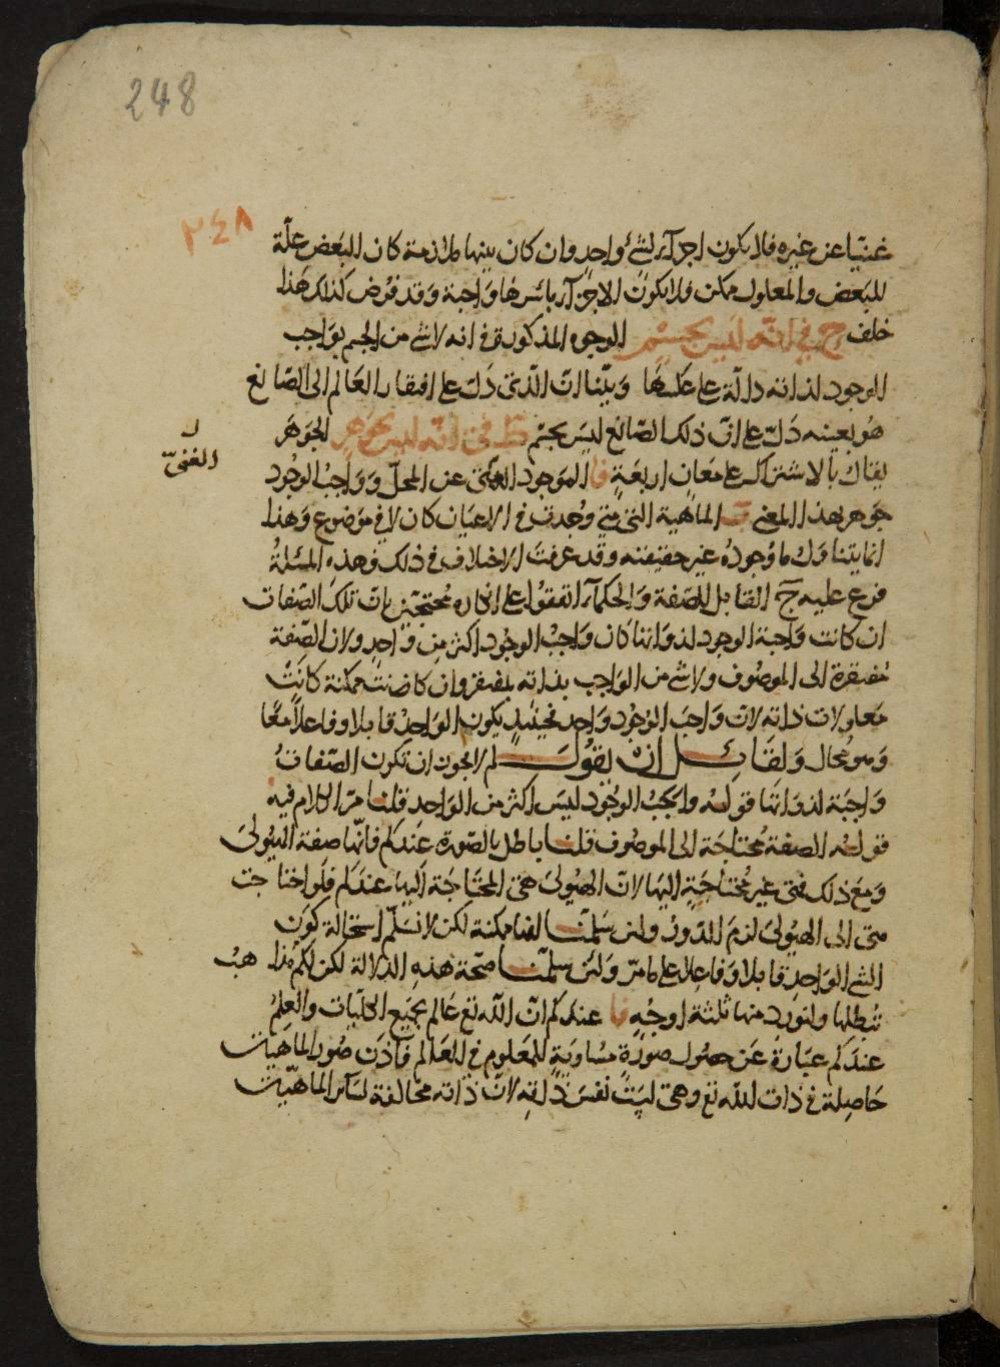 248
٢٤٨
غنيّا عن غيره فلا يكون اجزآء لشئ واحدٍ وان كان بينها ملازمة كان البعض علّة
للبعض والمعلول ممكن فلا يكون الاجزآء باسرها واجبة وقد فرض كذلك هذا
خلف ح في انّه ليس بجسم الوجوه المذكورة في انه لا شئ من الجسم بواجب
الوجود لذاته دالّة على عكسها وبيّنا انّ الّذي دلّ على افتقار العالم الى الصّانع
هو بعينه دلّ على انّ ذلك الصّانع ليس بجسم ط في انّه ليس بجوهر الجوهر
يقال بالاشتراك على معانٍ اربعةٍ فا الموجود الغنيّ عن المحلّ وواجب الوجود
الغنيّ
جوهر بهذا المعنى ب الماهية التي متى وُجدت في الاعيان كان لا في موضوع وهذا
انما يتناول ما وُجودُه غير حقيقته وقد عرفت الاختلاف في ذلك وهذه المسئلةُ
فرع عليه ج القابل للصّفة والحكمآء اتفقوا على انكاره محتجّين بانّ تلك الصّفات
ان كانت واجبة الوجود لذواتها كان واجبُ الوجود اكثر من واحدٍ ولان الصّفة
مُفتقرة الى الموصوف ولا شئ من الواجب بذاته بمفتقر وان كانت ممكنة كانت
معلولات ذاته لانّ واجبَ الوجود واحد فحينئذٍ يكون الواحدُ قابلا وفاعلاً معًا
وهو محال ولقائل ان يقول لم لا يجوز ان تكون الصّفات
واجبَة لذواتها قوله واجبُ الوجود ليس اكثر من الواحد قلنا مرّ الكلام فيه
قوله الصفة محتاجة الى الموصُوف قلنا باطل بالصّورة عندكم فانّها صفة الهيُولى
ومع ذلك فهي غير محتاجةٍ اليها لانّ الهيُولى هي المحتاجة اليها عندكم فلو احتاجت
هي الى الهيُولى لزم الدّور ولئن سلّمنا انها ممكنة لكن لا نسلّم استحالة كون
الشئ الواحد قابلا وفاعلا على ما مرّ ولئن سلّمنا صحّة هذهِ الدّلالة لكن لكم هذا هبُ
تُبطلها ولنورد منها ثلثة اوجُهٍ فا عندكم انّ الله تع عالم بجميع الكلّيات والعلمُ
عندكم عبارةٌ عن حصُول صورةٍ مساويةٍ للمعلوم في العالم فاذن صُور الماهيّات
حاصلة في ذات الله تع وهي ليست نفس ذاته لانّ ذاته مخالفة لسآئر الماهيّات